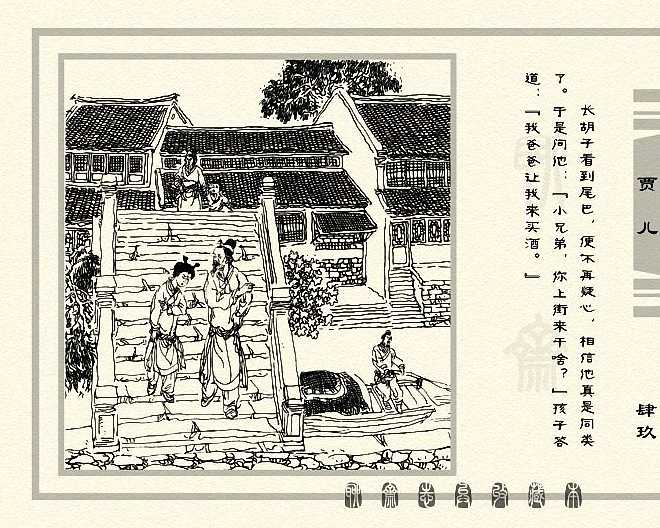 长胡子看到尾巴，便不再疑心，相信他真是同类
了。于是问他：“小兄弟，你上街来干啥？”孩子答
道：“我爸爸让我来买酒。”
贾儿
肆玖
聊斋志异收藏本